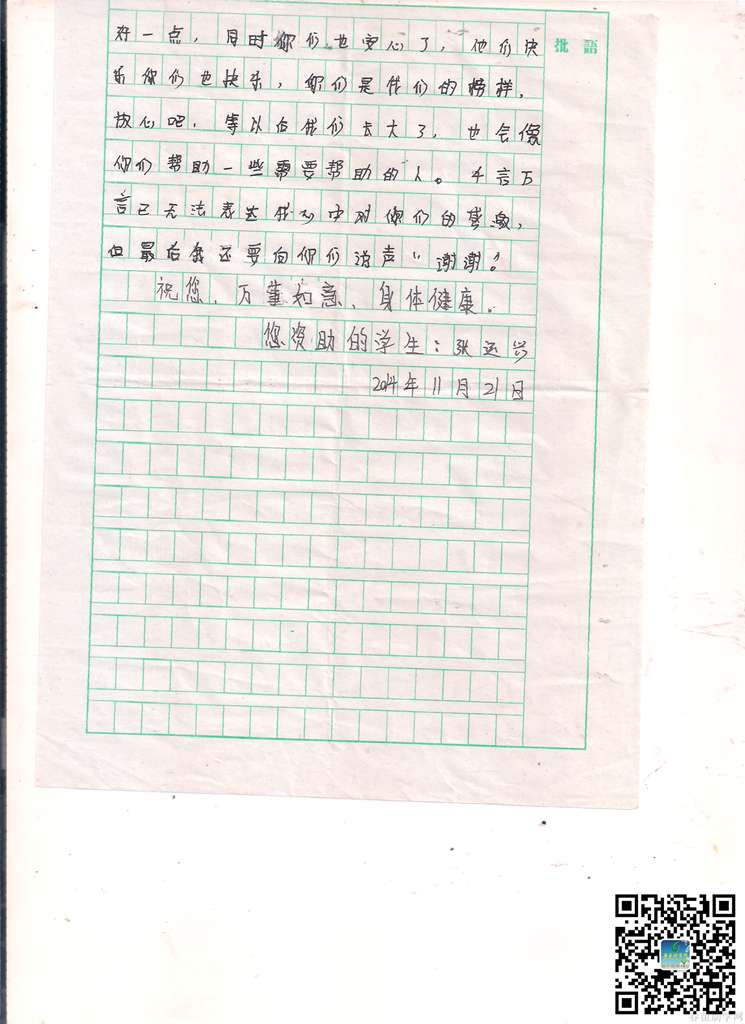 好一点，同时你们也安心了，他们快
乐你们也快乐，你们是我们的榜样，
放心吧，等以后我们长大了，也会像
你们帮助一些需要帮助的人。千言万
言已无法表达我心中对你们的感激，
但最后我还要向你们说声“谢谢！
祝您、万事如意、身体健康。
您资助的学生：张运兴
2014年11月21日
批語